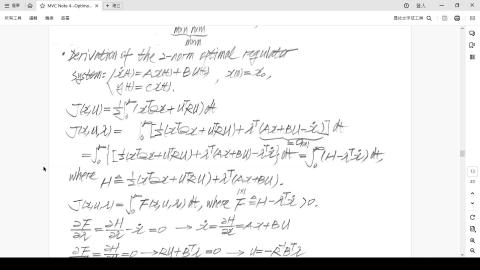 MVC Note 4 -Optima...
登入
所有工具 編輯
min num
min
• Derivation of the 2-norm optimal regulator
system: { ẋ(t)=Ax(t)+Bu(t), x(0)=x₀,
y(t)=Cx(t).
J(x,u)=½∫₀^∞(xᵀQx+uᵀRu)dt
J(x,u,λ)= ∫₀^∞[½(xᵀQx+uᵀRu)+λᵀ(Ax+Bu-ẋ)]dt
=∫₀^∞{[½(xᵀQx+uᵀRu)+λᵀ(Ax+Bu)-λᵀẋ}dt=∫₀^∞(H-λᵀẋ)dt,
where H≜½(xᵀQx+uᵀRu)+λᵀ(Ax+Bu).
J(x,u,λ)=∫₀^∞F(x,u,λ)dt, where F≜H-λᵀẋ>0.
∂F/∂λ=∂H/∂λ-ẋ=0 → ẋ=∂H/∂λ=Ax+Bu
∂F/∂u=∂H/∂u=0 → Ru+Bᵀλ=0 → u=-R⁻¹Bᵀλ